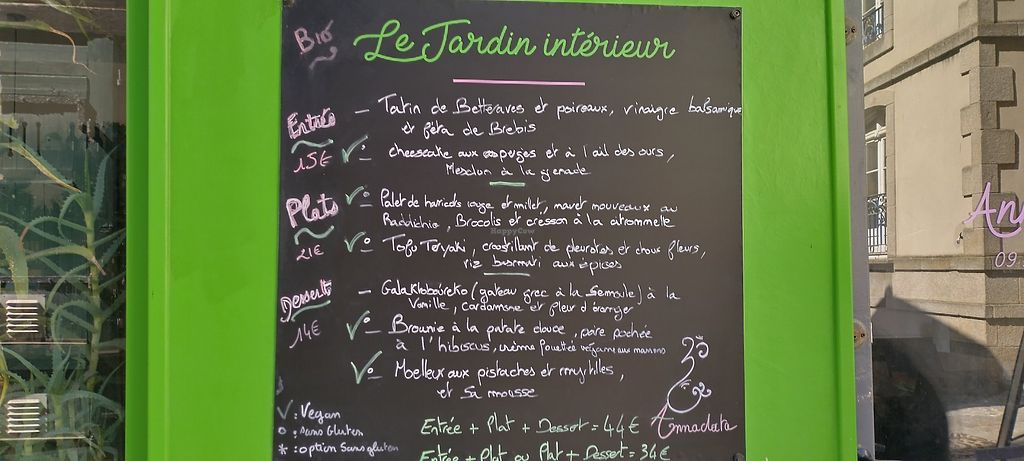 Bio
Le Jardin intérieur
Entrées
15€
- Tatin de Betteraves et poireaux, vinaigre balsamique
et féta de Brebis
√° - cheesecake aux asperges et à l'ail des ours,
Mesclun à la grenade
Plats
21€
√° - Palet de haricots rouge et millet, navet nouveaux au
Raddichio, Brocolis et cresson à la citronnelle
HappyCow
√° - Tofu Teryaki, croustillant de pleurotes et choux fleurs,
riz basmati aux épices
Desserts
14€
- Galaktoboureko (gateau grec à la Semoule) à la
Vanille, cardamome et fleur d'oranger
√° - Brownie à la patate douce, poire pochée
à l'hibiscus, crème fouettée végane aux marrons
√ - Moelleux aux pistaches et myrtilles,
et sa mousse
√ : Vegan
° : Sans Gluten
* : option Sans gluten
Entrée + Plat + Dessert = 44€
Entrée + Plat ou Plat + Dessert = 34€
Annadata
09